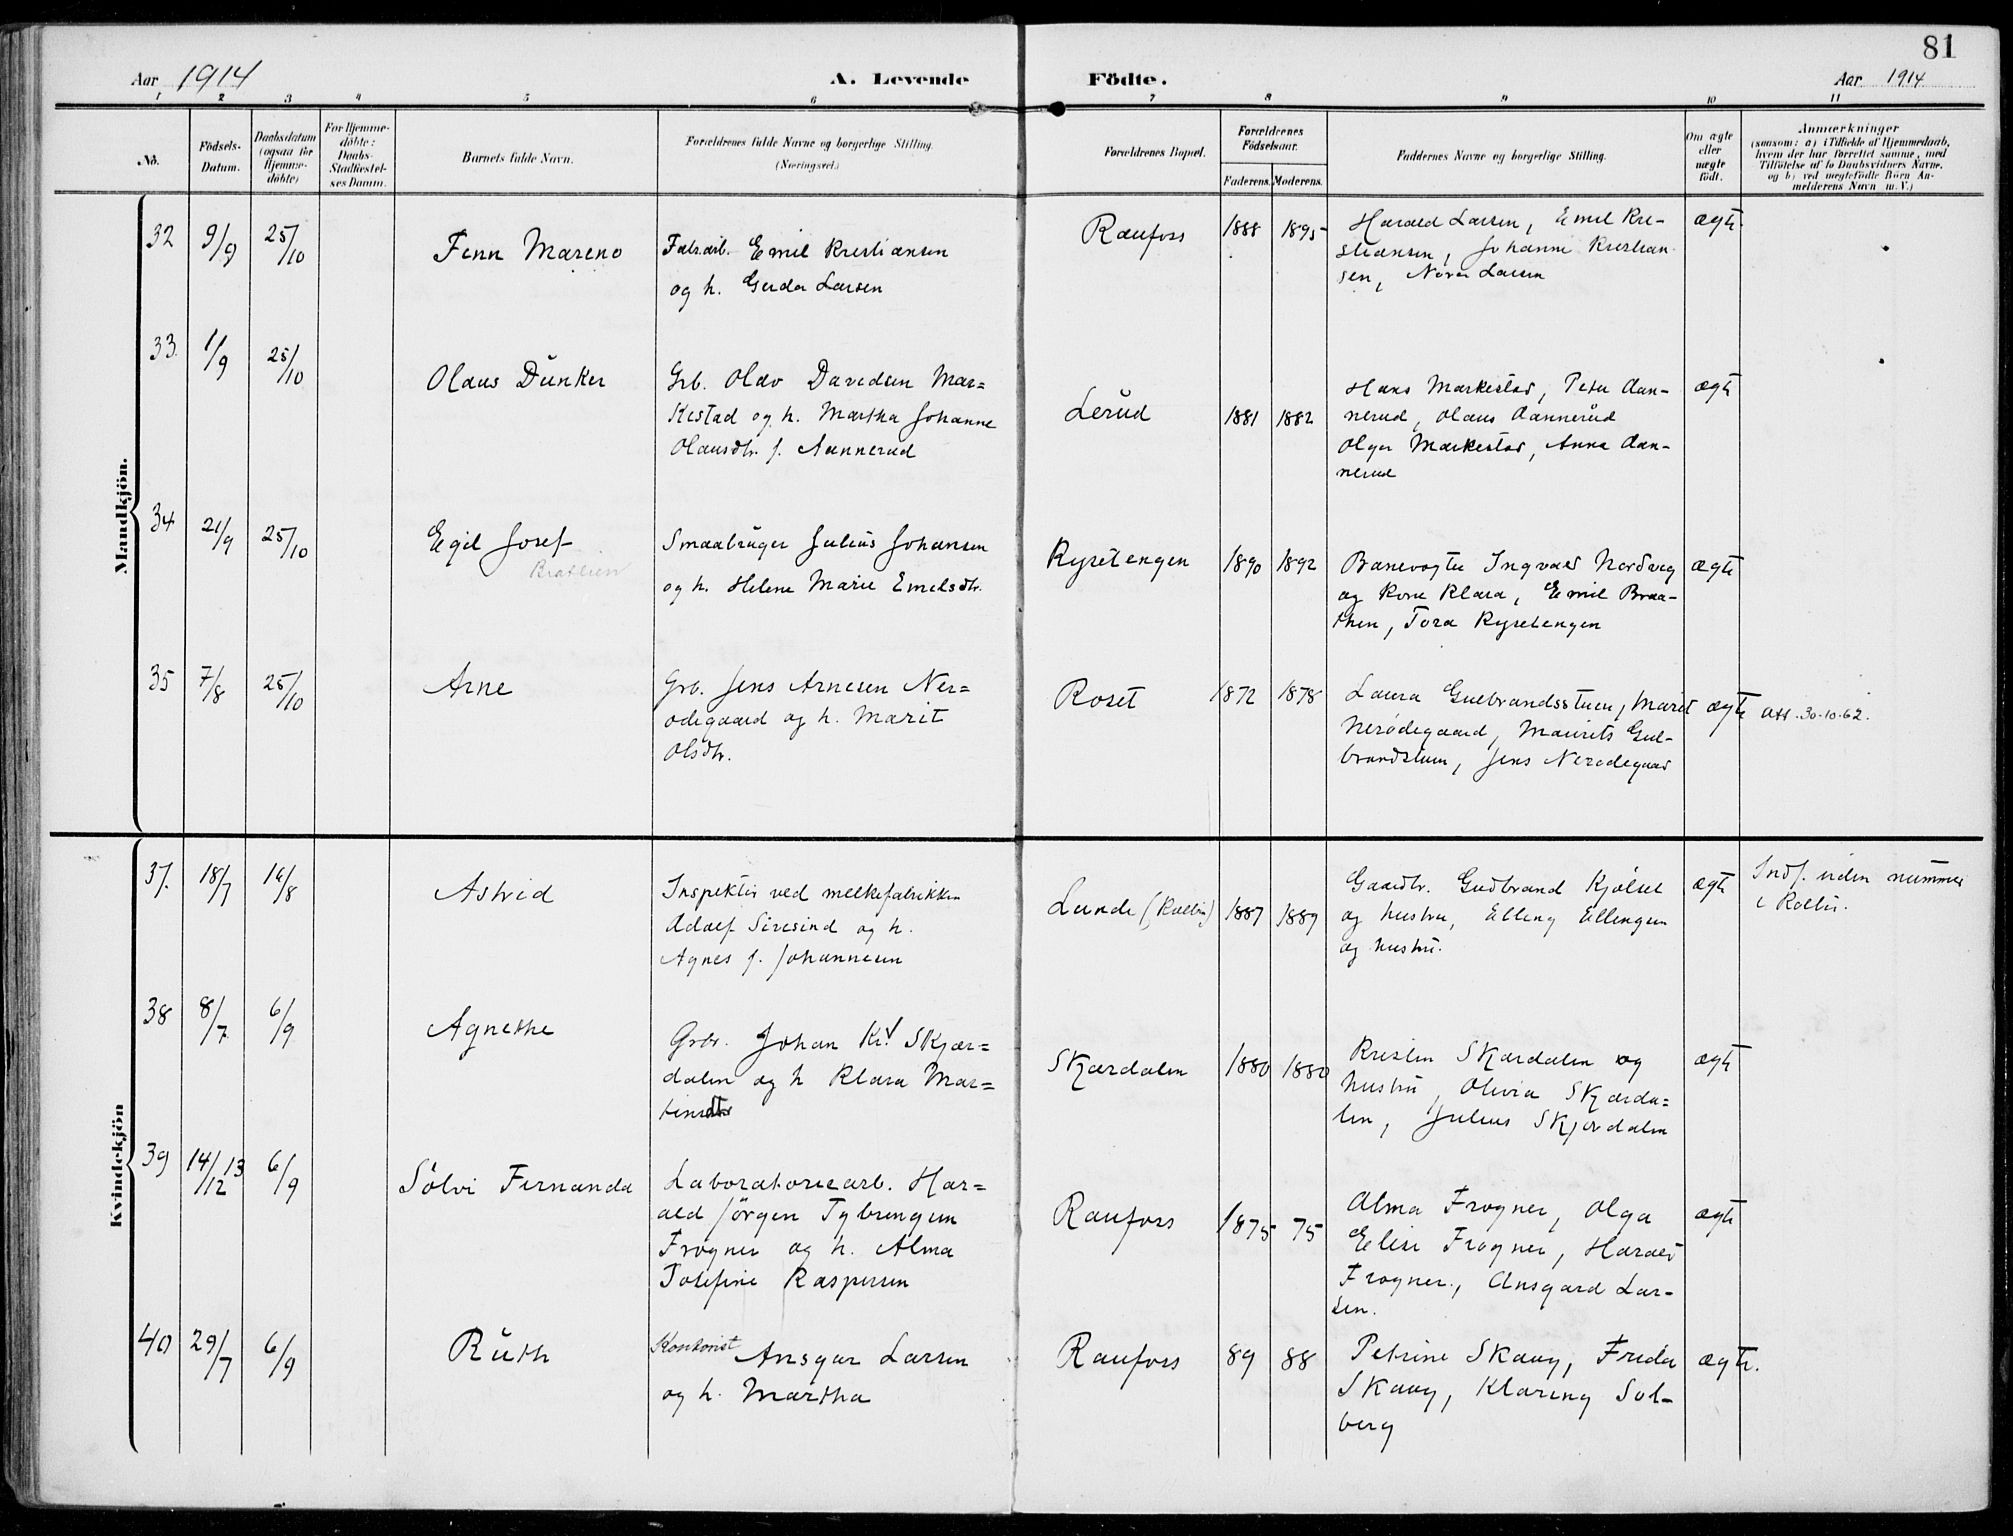 81
Aar 1914
A. Levende Födte.
Aar 1914
1 2 3 4 5 6 7 8 9 10 11
No.
Födsels-
Datum.
Daabsdatum
(ogsaa for
Hjemme-
döbte)
For Hjemme-
döbte:
Daabs-
Stadfæstel-
ses Datum.
Barnets fulde Navn.
Forældrenes fulde Navne og borgerlige Stilling.
(Næringsvei.)
Forældrenes Bopæl.
Forældrenes
Födselsaar.
Faderens. Moderens.
Faddernes Navne og borgerlige Stilling.
Om ægte
eller
uægte
födt.
Anmærkninger
(saasom: a) i Tilfælde af Hjemmedaab,
hvem der har forrettet samme, med
Tilföielse af to Daabsvidners Navne,
og b) ved uægtefödte Börn An-
melderens Navn m. V.)
Mandkjön.
32 9/9 25/10 Finn Mareno
Fabr.arb. Emil Kristiansen
og h. Gerda Larsen
Raufoss 1888 1895
Harald Larsen, Emil Kri-
stiansen, Johanne Kristian-
sen, Nora Larsen
ægte
33 1/9 25/10 Olaus Dunker
Grb. Olav Davidsen Mar=
kestad og h. Martha Johanne
Olausdtr. f. Aannerud
Lerud 1881 1882
Hans Markestad, Peter Aan-
nerud, Olaus Aannerud
Olga Markestad, Anna Aan-
nerud
ægte
34 21/9 25/10 Egil Josef
Braathen
Smaabruger Julius Johansen
og h. Helene Marie Emilsdtr.
Ryseteng​en 1890 1892
Banevogter Ingvald Nordveg
og kone Klara, Emil Braa-
then, Tora Rysetengen
ægte
35 7/8 25/10 Arne
Grb. Jens Arnesen Ner=
ødegaard og h. Marit
Olsdtr.
Roset 1872 1878
Laura Gulbrandsstuen, Marit
Nerødegaard, Maurits Gul-
brandstuen, Jens Nerødegaard
ægte
att. 30-10-62.
Kvindekjön
37. 18/7 16/8 Astrid
Inspektør ved melkefabrikken
Adolf Siresind og h.
Agnes f. Johannesen
Lunde (Kolbu) 1887 1889
Gaardbr. Gudbrand Kjølset
og hustru, Elling Ellingsen
og hustru.
ægte
Indf. uden nummer
i Kolbu.
38 8/7 6/9 Agnethe
Grbr. Johan Kr. Skjær=
dalen og h Klara Mar=
tinsdtr
Skjærdalen 1880 1880
Kristen Skjærdalen og
hustru, Olivia Skjærda=
len, Julius Skjærdalen
ægte
39 14/12 13 6/9 Sölvi Fernanda
Laboratoriearb. Har=
ald Jörgen Tybringsen
Frogner og h. Alma
Josefine Kaspersen
Raufoss 1875 75
Alma Frogner, Olga
Elise Frogner, Harald
Frogner, Ansgard Lar-
sen.
ægte
40 29/7 6/9 Ruth
Kontorist Ansgar Larsen
og h. Martha
Raufoss 89 88
Petrine Skaug, Frida
Skaug, Klaring Sol-
berg
ægte.